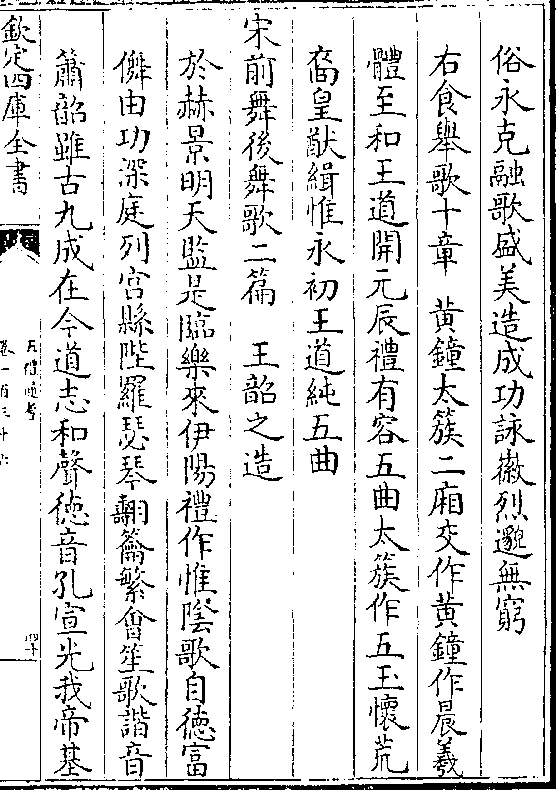 俗永克融歌盛美造成功詠徽烈邈無窮
右食舉歌十章　黃鐘太簇二廂交作黃鐘作晨羲
體至和王道開元辰禮有容五曲太簇作五玉懷荒
裔皇猷緝惟永初王道純五曲
宋前舞後舞歌二篇　王韶之造
於赫景明天監是臨樂來伊陽禮作惟陰歌自德富
儛由功深庭列宮縣陛羅瑟琴翿籥繁會笙歌諧音
簫韶雖古九成在今道志和聲德音孔宣光我帝基
欽定四庫全書
五禮通考
卷一百三十六
四十